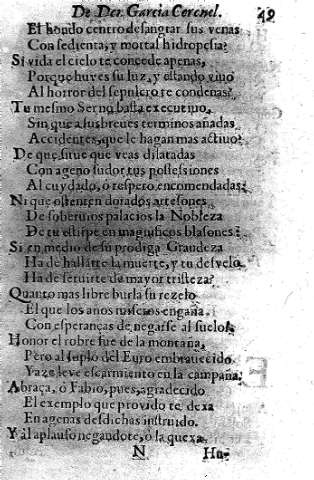 De Don Garcia Coronel. 49
El hondo centro desangrar sus venas
Con sedienta, y mortal hidropesia?
Si vida el cielo te concede apenas,
Porque huyes su luz, y estando vivo
Al horror del sepulcro te condenas?
Tu mesmo Sern basta executivo,
Sin que a sus breues terminos añadas
Accidentes, que le hagan mas actiuo?
De que sirue que veas dilatadas
Con ageno sudor tus possessiones
Al cuydado, o respero encomendadas?
Ni que ostenten dorados artesones
De soberuios palacios la Nobleza
De tu estirpe en magnificos blasones?
Si en medio de su prodiga Grandeza
Ha de hallarte la muerte, y tu desvelo
Ha de seruirte de mayor tristeza?
Quanto mas libre burla su rezelo
El que los años miseros engaña
Con esperanças de negarse al suelo!
Honor el robre fue de la montaña,
Pero al soplo del Euro embrauecido
Yaze leve escarmiento en la campaña.
Abraça, o Fabio, pues, agradecido
El exemplo que provido te dexa
En agenas desdichas instruido.
Y al aplauso negandote, o la quexa,
N Hu-